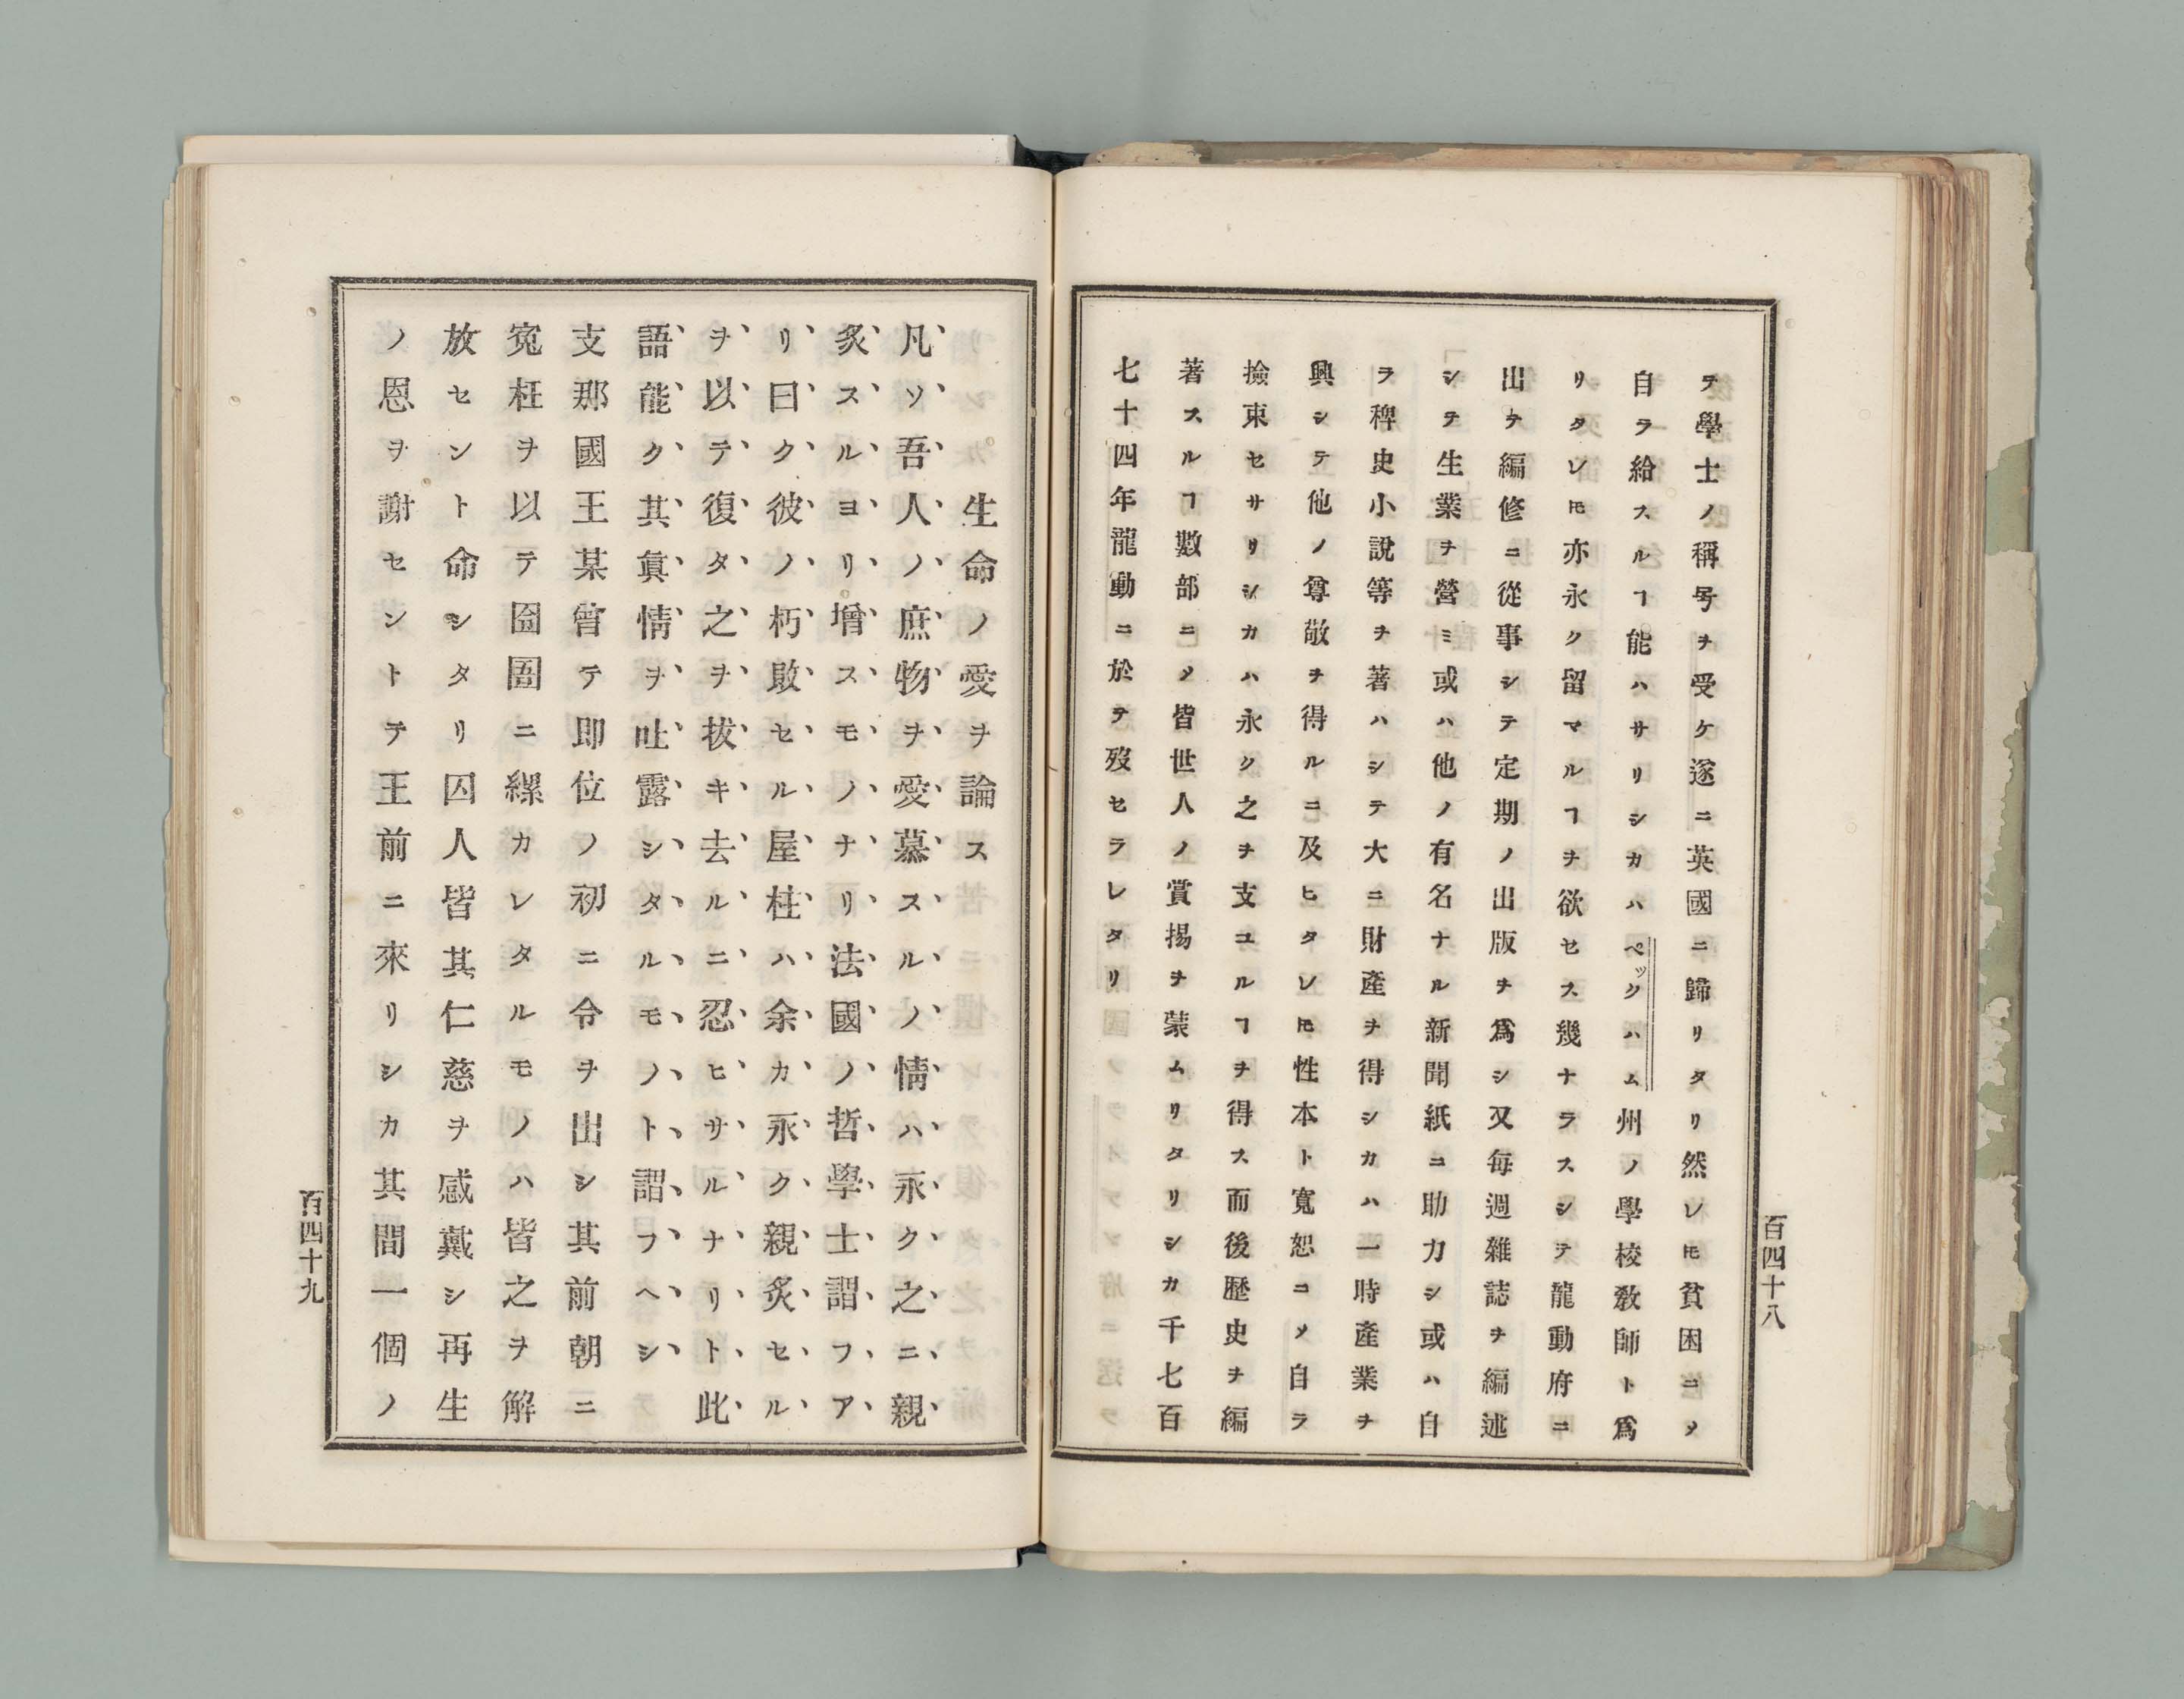 テ學士ノ稱号ヲ受ケ遂ニ英國ニ歸リタリ然レ𪜈貧困ニメ
自ラ給スルヿ能ハサリシカハペックハム州ノ學校敎師ト爲
リタレ𪜈亦永ク留マルヿヲ欲セス幾ナラスシテ龍動府ニ
出テ編修ニ從事シテ定期ノ出版ヲ爲シ又每週雜誌ヲ編述
シテ生業ヲ營ミ或ハ他ノ有名ナル新聞紙ニ助力シ或ハ自
ラ稗史小說等ヲ著ハシテ大ニ財產ヲ得シカハ一時產業ヲ
興シテ他ノ尊敬ヲ得ルニ及ヒタレ𪜈性本ト寬恕ニメ自ラ
撿束セサリシカハ永ク之ヲ支ユルヿヲ得ス而後歷史ヲ編
著スルヿ數部ニメ皆世人ノ賞揚ヲ蒙ムリタリシカ千七百
七十四年龍動ニ於テ歿セラレタリ
百四十八
生命ノ愛ヲ論ス
凡ソ吾人ノ庶物ヲ愛慕スルノ情ハ永ク之ニ親
炙スルヨリ增スモノナリ法國ノ哲學士謂フア
リ曰ク彼ノ朽敗セル屋柱ハ余カ永ク親炙セル
ヲ以テ復タ之ヲ拔キ去ルニ忍ヒサルナリト此
語能ク其眞情ヲ吐露シタルモノト謂フヘシ
支那國王某曾テ即位ノ初ニ令ヲ出シ其前朝ニ
寃枉ヲ以テ囹圄ニ縲カレタルモノハ皆之ヲ解
放セント命シタリ囚人皆其仁慈ヲ感戴シ再生
ノ恩ヲ謝センドテ王前ニ來リシカ其間一個ノ
百四十九